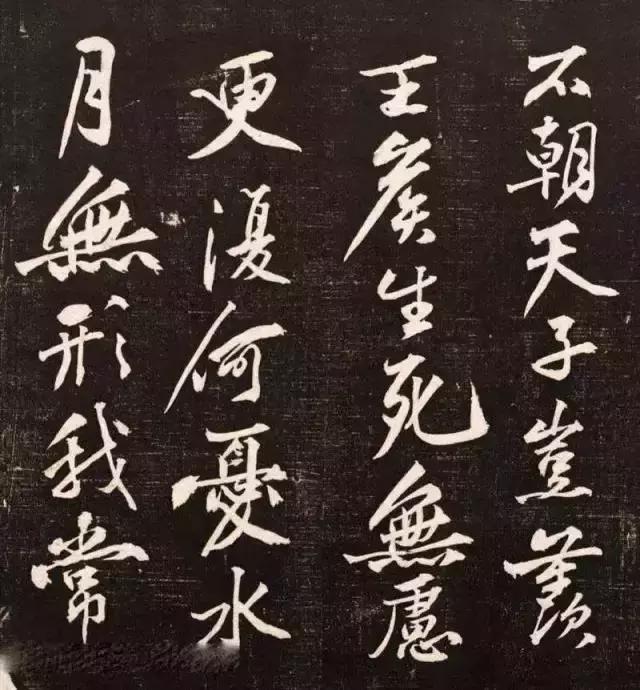 不朝天子豈羨
王侯生死無慮
更復何憂水
月無形我常